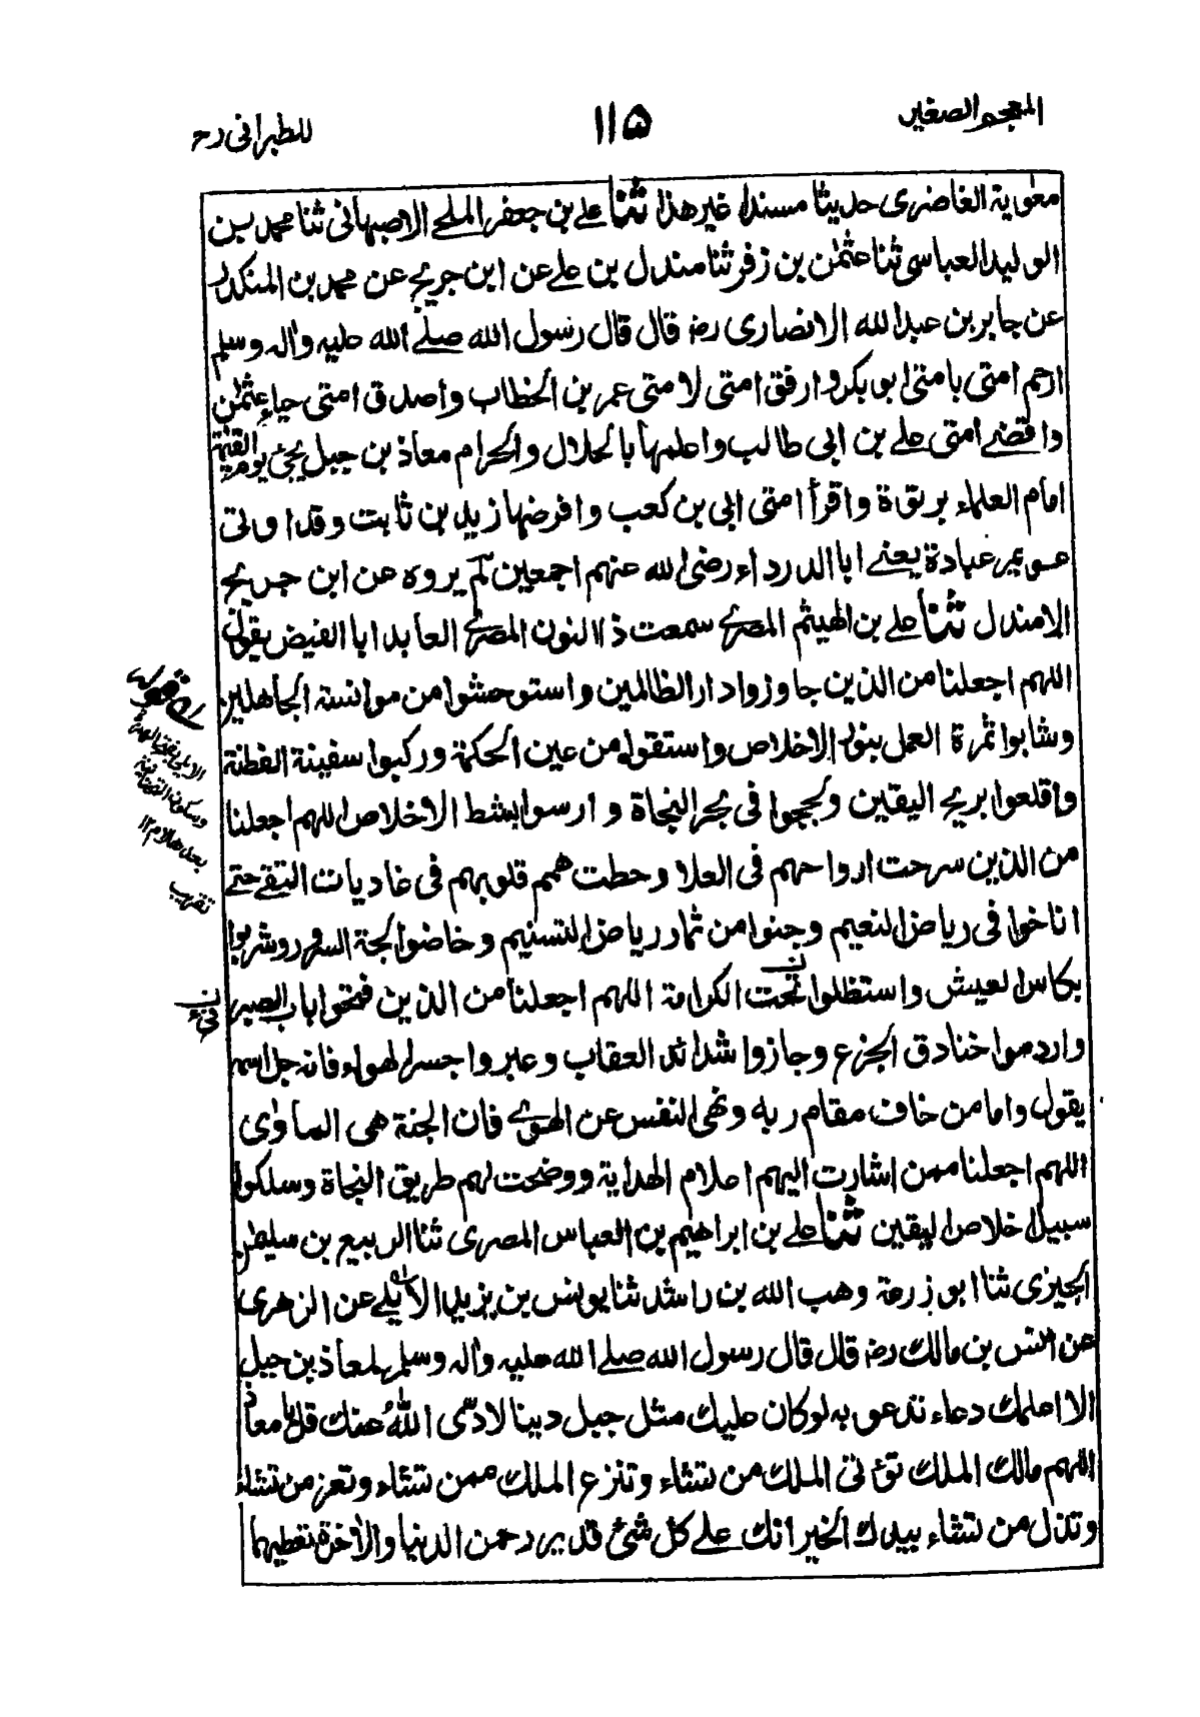 المعجم الصغير
۱۱۵
للطبرانی رح
معٰوية الغاضری حديثا مسندا غير هذا ثنا علے بن جعفر الملحی الاصبهانی ثنا محمد بن
الوليد العباسی ثنا عثمٰن بن زفر ثنا مندل بن علے عن ابن جريج عن محمد بن المنكدر
عن جابر بن عبد الله الانصاری رضہ قال قال رسول الله صلے الله عليه واٰله وسلم
ارحم امتی بامتی ابو بكر وارفق امتی لامتی عمر بن الخطاب واصدق امتی حياء عثمٰن
واقضے امتی علے بن ابی طالب واعلمها بالحلال والحرام معاذ بن جبل يجئ يوم القيٰمة
امام العلماء برتوة واقرأ امتی ابی بن كعب وافرضها زيد بن ثابت وقد اوتی
عويمر عبادة يعنے ابا الدرداء رضی الله عنهم اجمعين لم يروه عن ابن جريج
الا مندل ثنا علے بن الهيثم المصرے سمعت ذا النون المصرے العابد ابا الفيض يقول
اللهم اجعلنا من الذين جاوزوا دار الظالمين واستوحشوا من موانسة الجاهلين
وشابوا ثمرة العمل بنور الاخلاص واستقوا من عين الحكمة وركبوا سفينة الفطنة
واقلعوا بريح اليقين ولججوا فی بحر النجاة و ارسوا بشط الاخلاص اللهم اجعلنا
من الذين سرحت ارواحهم فی العلا وحطت همم قلوبهم فی غاديات التقے حتے
اناخوا فی رياض النعيم وجنوا من ثمار رياض التسنيم وخاضوا لجة السرور وشربوا
بكاس العيش واستظلوا تحت الكرامة اللهم اجعلنا من الذين فتحوا باب الصبر
واردموا خنادق الجزع وجازوا شدائد العقاب وعبروا جسر الهواء فانه جل اسمه
يقول واما من خاف مقام ربه ونهی النفس عن الهوے فان الجنة هی الماوٰی
اللهم اجعلنا ممن اشارت اليهم اعلام الهداية ووضحت لهم طريق النجاة وسلكوا
سبيل اخلاص اليقين ثنا علے بن ابراهيم بن العباس المصری ثنا الربيع بن سليمٰن
الجيزی ثنا ابو زرعة وهب الله بن راشد ثنا يونس بن يزيد الايلے عن الزهری
عن انس بن مالك رضہ قال قال رسول الله صلے الله عليه واٰله وسلم لمعاذ بن جبل
الا اعلمك دعاء تدعو به لو كان عليك مثل جبل دينا لادّی اللهُ عنك قل يا معاذ
اللهم مالك الملك تؤتی الملك من تشاء وتنزع الملك ممن تشاء وتعز من تشاء
وتذل من تشاء بيدك الخير انك علے كل شئ قدير رحمن الدنيا والاٰخرة تعطيهما
قوله
الايلی بفتح الهمزة
وسكون التحتانية
بعدها لام ۱۲
تقريب